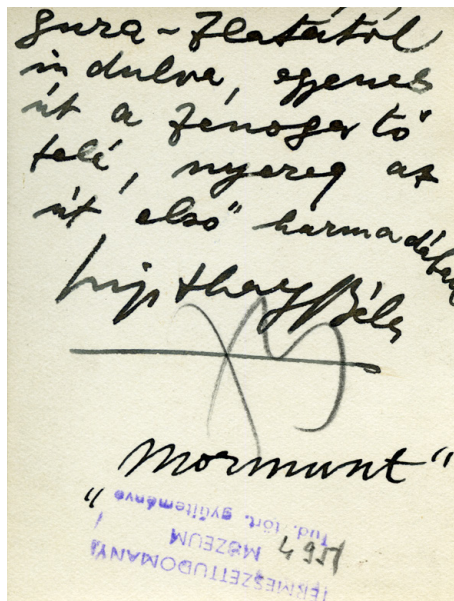 Gura-Zlatától
indulva, egyenes
út a Zenoga tó
felé, nyereg az
út első harmadában
Szipthay Béla
"Mormunt"
TERMÉSZETTUDOMÁNYI
MÚZEUM
Tud. tört. gyűjteménye
4951